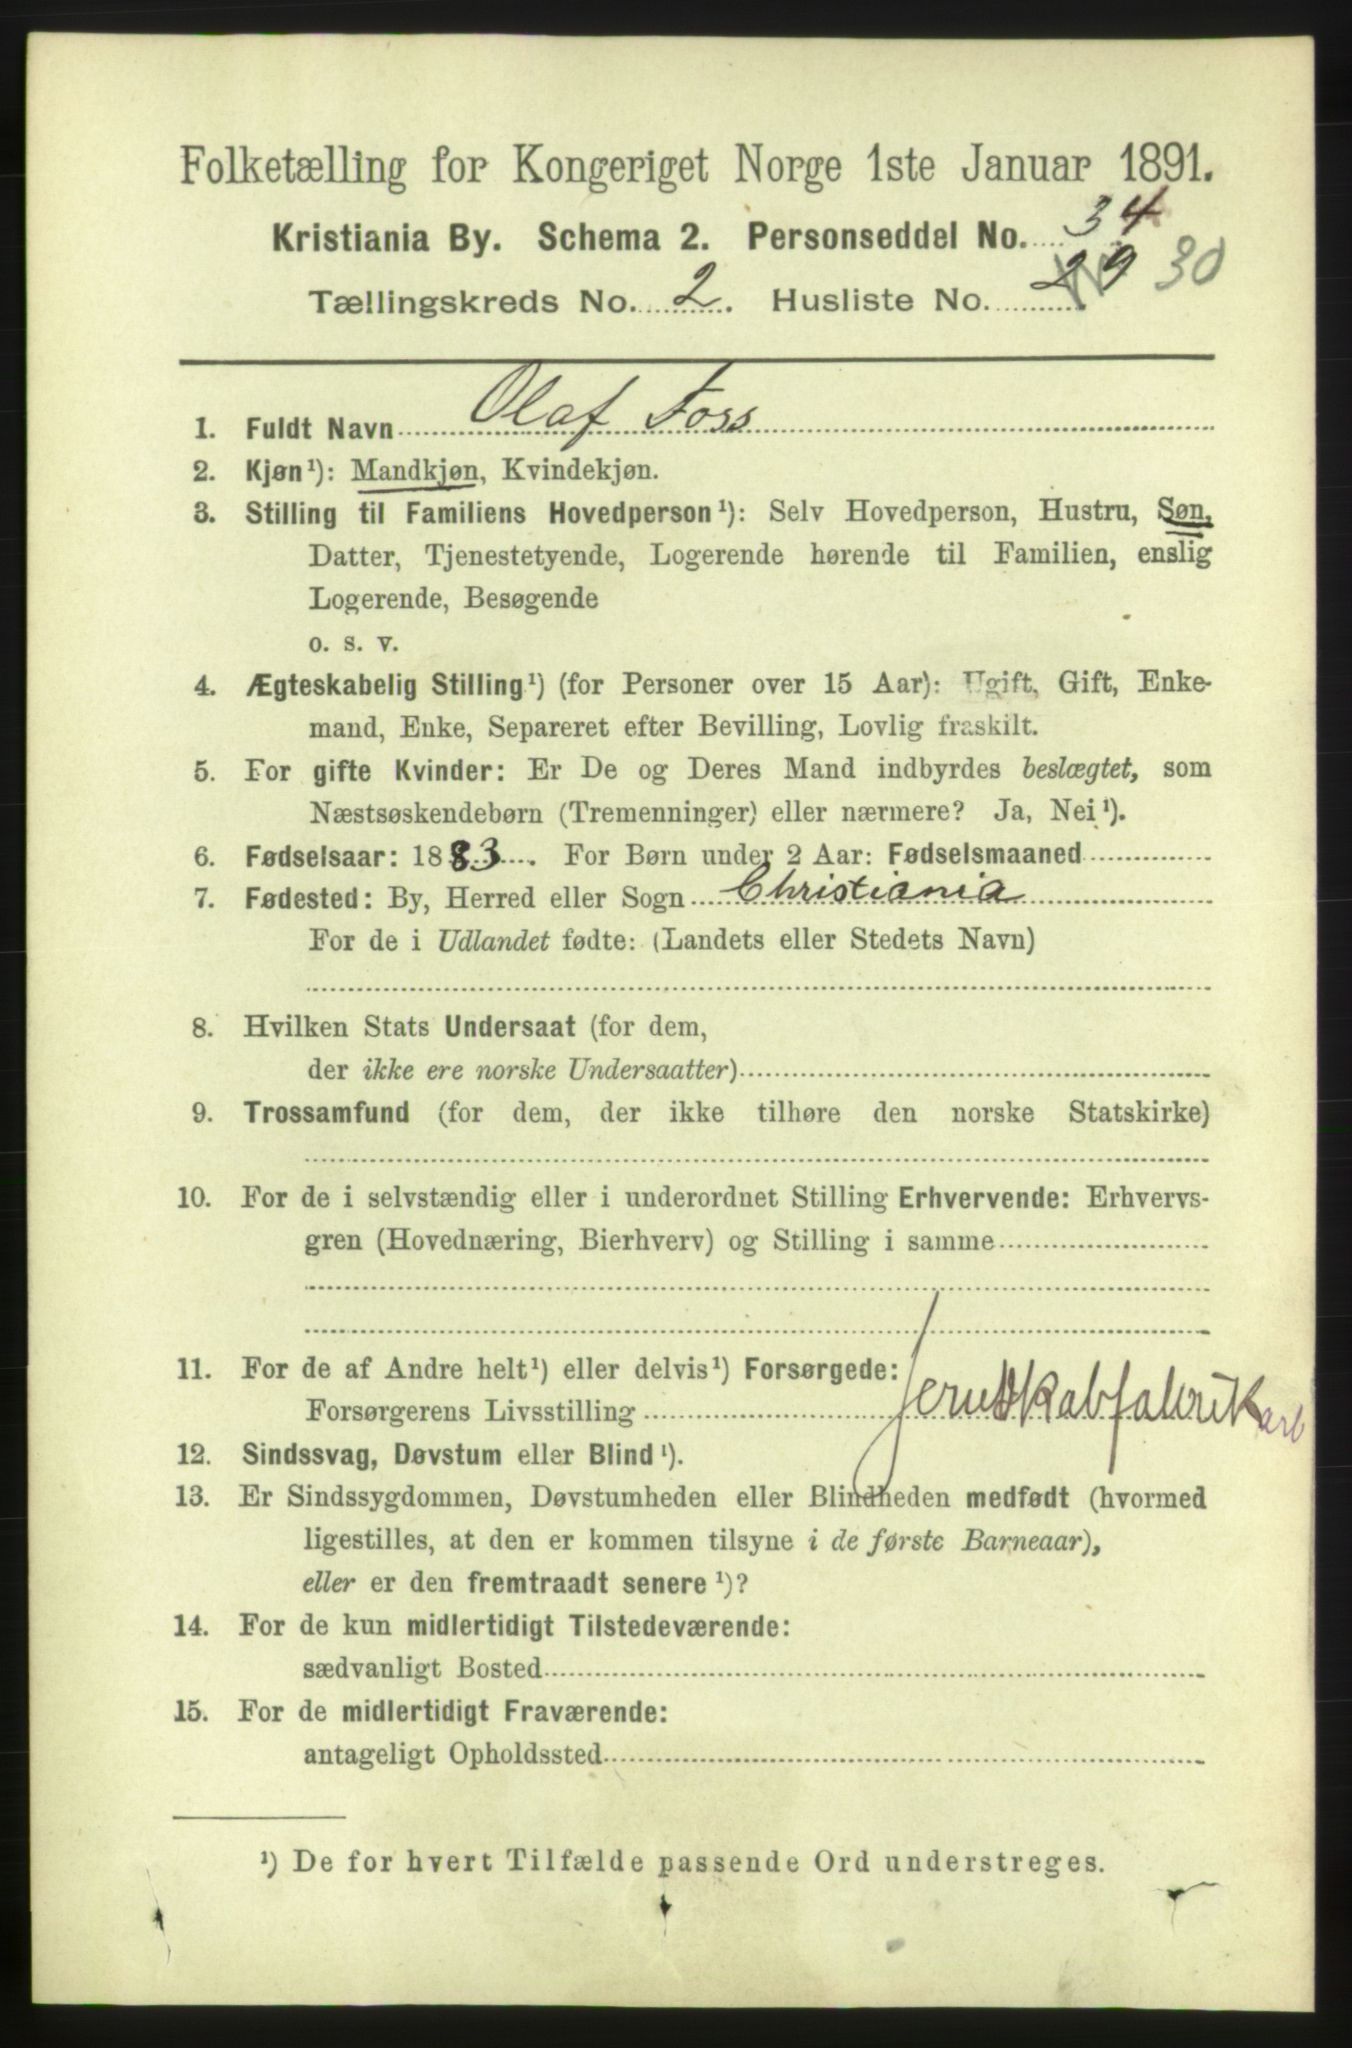 Folketælling for Kongeriget Norge 1ste Januar 1891.
Kristiania By. Schema 2. Personseddel No. 34
Tællingskreds No. 2. Husliste No. 29 30
1. Fuldt Navn Olaf Foss
2. Kjøn¹): Mandkjøn, Kvindekjøn.
3. Stilling til Familiens Hovedperson¹): Selv Hovedperson, Hustru, Søn,
Datter, Tjenestetyende, Logerende hørende til Familien, enslig
Logerende, Besøgende
o. s. v.
4. Ægteskabelig Stilling¹) (for Personer over 15 Aar): Ugift, Gift, Enke-
mand, Enke, Separeret efter Bevilling, Lovlig fraskilt.
5. For gifte Kvinder: Er De og Deres Mand indbyrdes beslægtet, som
Næstsøskendebørn (Tremenninger) eller nærmere? Ja, Nei¹).
6. Fødselsaar: 1883. For Børn under 2 Aar: Fødselsmaaned
7. Fødested: By, Herred eller Sogn Christiania
For de i Udlandet fødte: (Landets eller Stedets Navn)
8. Hvilken Stats Undersaat (for dem,
der ikke ere norske Undersaatter)
9. Trossamfund (for dem, der ikke tilhøre den norske Statskirke)
10. For de i selvstændig eller i underordnet Stilling Erhvervende: Erhvervs-
gren (Hovednæring, Bierhverv) og Stilling i samme
11. For de af Andre helt¹) eller delvis¹) Forsørgede:
Forsørgerens Livsstilling Jernskabfabrikarb
12. Sindssvag, Døvstum eller Blind¹).
13. Er Sindssygdommen, Døvstumheden eller Blindheden medfødt (hvormed
ligestilles, at den er kommen tilsyne i de første Barneaar),
eller er den fremtraadt senere¹)?
14. For de kun midlertidigt Tilstedeværende:
sædvanligt Bosted
15. For de midlertidigt Fraværende:
antageligt Opholdssted
¹) De for hvert Tilfælde passende Ord understreges.